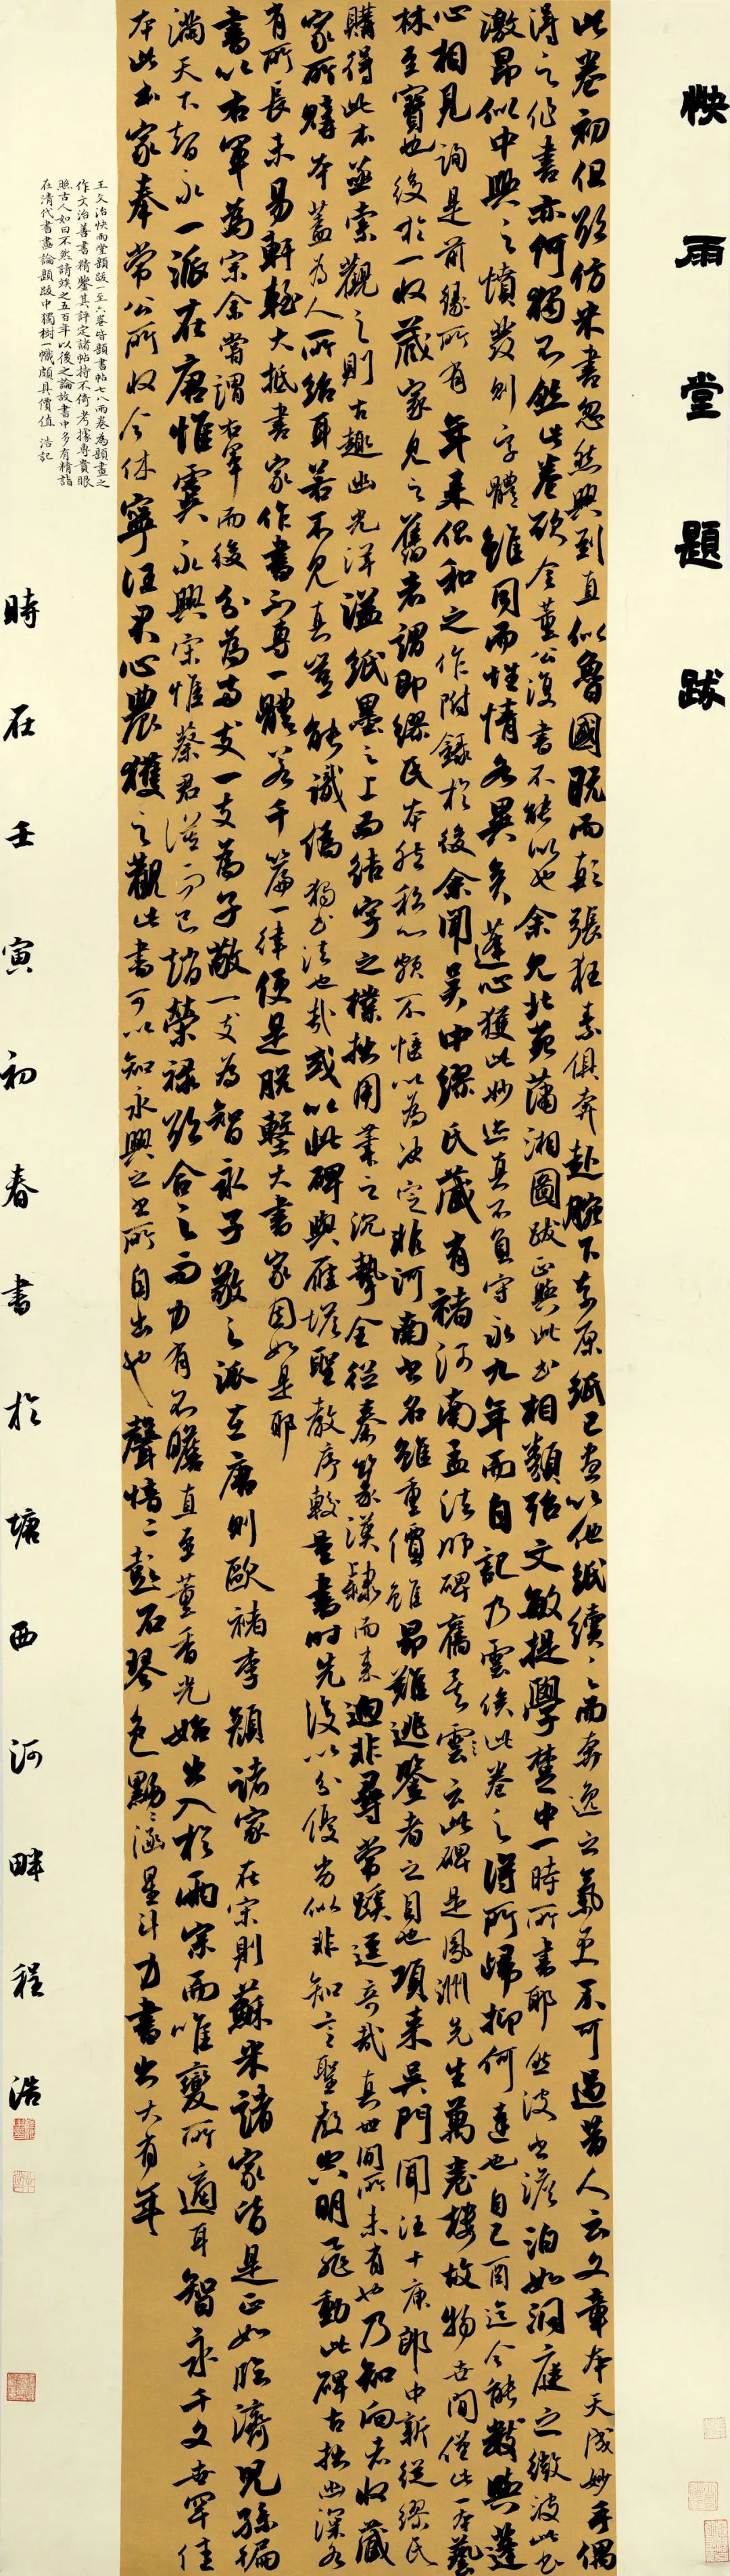 快雨堂題跋
此卷初但欲仿米書忽然興到直似魯國既而顛張狂素俱奔赴腕下矣原紙已盡以他紙續之而奔逸之氣更不可遏昔人云文章本天成妙手偶
得之作書亦何獨不然此卷欲令董公復書不能似也余見北苑瀟湘圖跋正與此書相類殆文敏提學楚中一時所書耶然彼書澹泊如洞庭之微波此書
激昂似中興之憤發則字體雖同而性情各異矣蓬心獲此妙跡真不負守永九年而自記乃云俟此卷之得所歸抑何達也自己酉迄今能數與蓬
心相見詢是前緣所有年來倡和之作附錄於後余聞吳中繆氏藏有褚河南孟法師碑舊矣云此碑是鳳洲先生萬卷樓故物世間僅此一本藝
林至寶也後於一收藏家見之舊者謂即繆氏本然私心頗不愜以為決定非河南書名雖重價雖昂難逃鑒者之目也項來吳門聞汪十庚郎中新從繆氏
購得此本亟索觀之則古趣幽光洋溢紙墨之上而結字之樸拙用筆之沉摯全從秦篆漢隸而來迥非尋常蹊逕奇哉真世間所未有也乃知向者收藏
家所購本蓋為人所紿耳若不見真豈能識偽獨書法也哉或以此碑與雁塔聖教序較量書時先後以分優劣似非知言聖教空明飛動此碑古拙幽深各
有所長未易軒輊大抵書家作書不專一體若千篇一律便是脫墼大書家固如是耶
書以右軍為宗余嘗謂右軍而後分為兩支一支為子敬一支為智永子敬之派在唐則歐褚李顏諸家在宋則蘇米諸家皆是正如臨濟兒孫徧
滿天下智永一派在唐惟虞永興宋惟蔡君謨而已趙榮祿欲合之而力有不贍直至董香光始出入於兩宗而唯變所適耳智永千文世罕佳
本此本家奉常公所收今休寧汪君心農獲之觀此書可以知永興之書所自出也
聲愔愔彭石琴色黝黝涵星斗力書出大有年
王文治快雨堂題跋一至六卷皆題書帖七八兩卷為題畫之
作文治善書精鑒其評定諸帖持不倚考據專貴眼
照古人如曰不然請俟之五百年以後之論故書中多有精詣
在清代書畫論題跋中獨樹一幟頗具價值 浩記
時在壬寅初春書於塘西河畔程浩